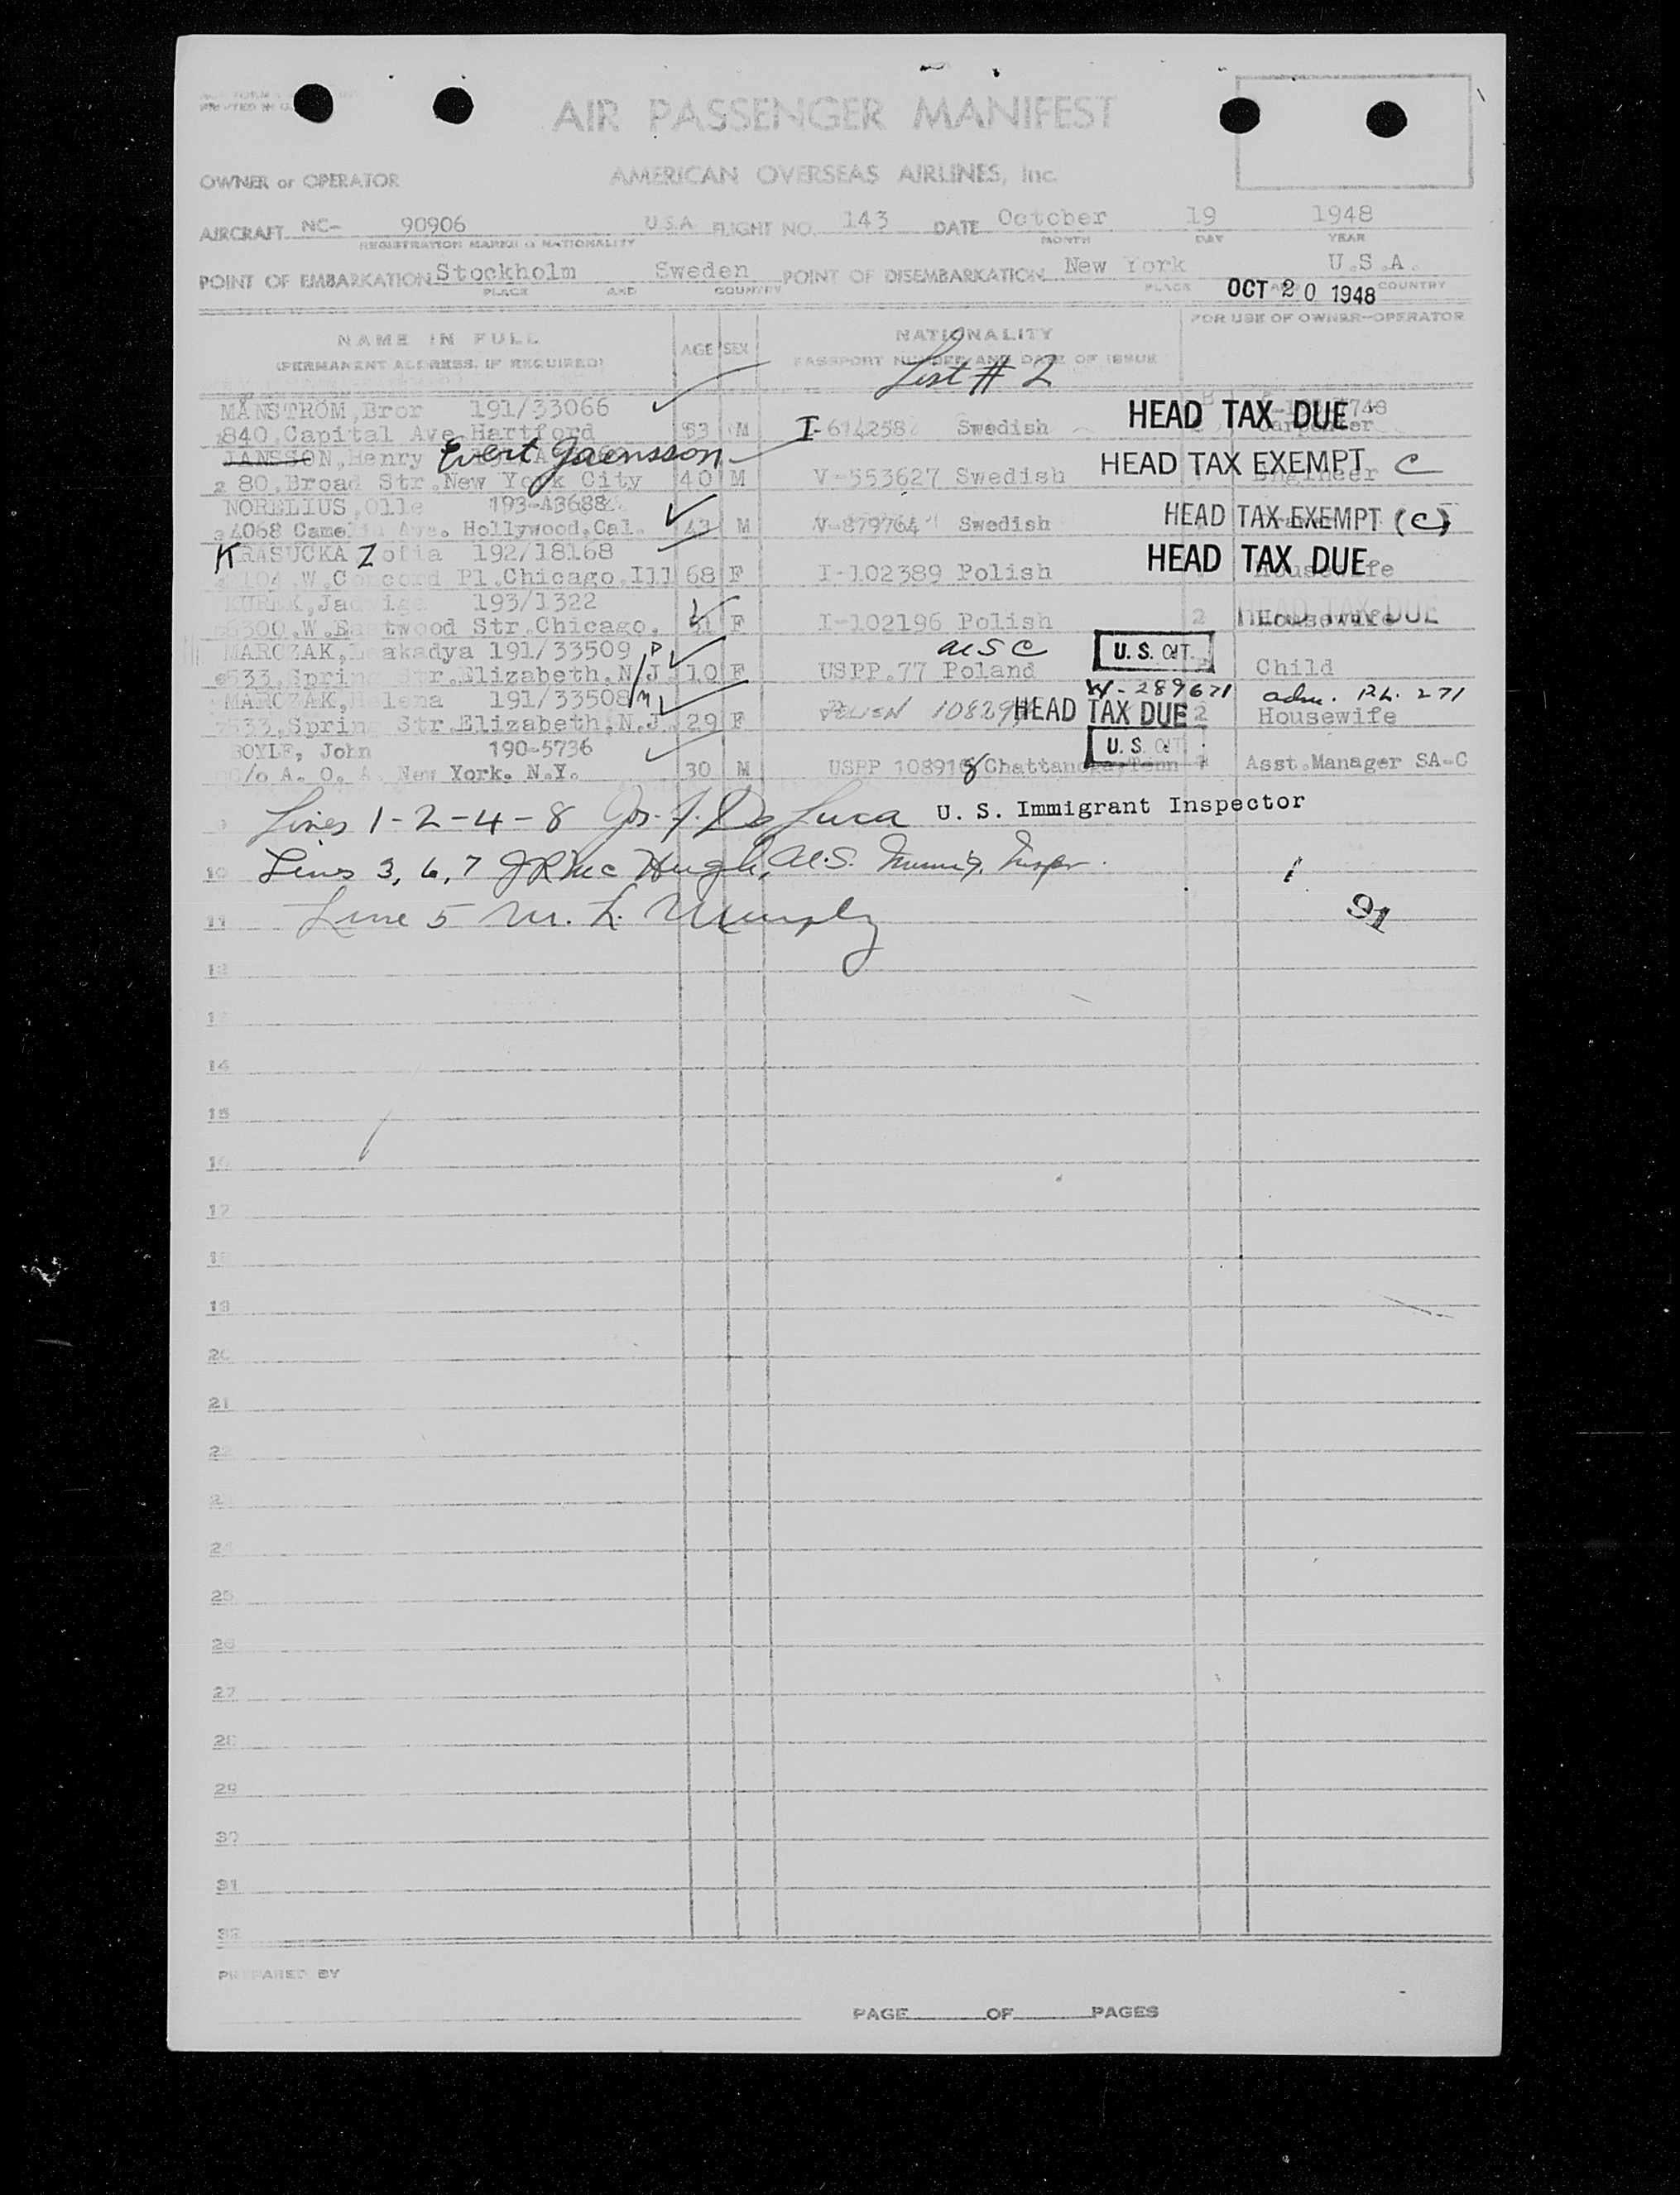 PRINTED IN U.
AIR PASSENGER MANIFEST
OWNER or OPERATOR AMERICAN OVERSEAS AIRLINES, Inc.
AIRCRAFT NC- 90906 U.S.A FLIGHT NO. 143 DATE October 19 1948
REGISTRATION MARKS NATIONALITY MONTH DAY YEAR
POINT OF EMBARKATION Stockholm Sweden POINT OF DISEMBARKATION New York U.S.A.
PLACE AND COUNTRY PLACE COUNTRY
OCT 20 1948
FOR USE OF OWNER-OPERATOR
NAME IN FULL AGE SEX NATIONALITY
(PERMANENT ADDRESS, IF REQUIRED) PASSPORT NUMBER AND DATE OF ISSUE
List # 2
MÅNSTRÖM, Bror 191/33066 HEAD TAX DUE
840, Capital Ave. Hartford 53 M I-614258 Swedish Carpenter
JANSSON, Henry Evert Jaensson HEAD TAX EXEMPT C
2 80, Broad Str. New York City 40 M V-553627 Swedish Engineer
NORELIUS, Olle HEAD TAX EXEMPT (C)
3 4068 Camelia Ave. Hollywood, Cal. 43 M V-879764 Swedish
KRASUCKA Zofia 192/18168 HEAD TAX DUE
W. Concord Pl. Chicago. Ill 68 F I-102389 Polish Housewife
KUREK, Jadwiga 193/1322 HEAD TAX DUE
W. Eastwood Str. Chicago. F I-102196 Polish 2 Housewife
MARCZAK, 191/33509 P USC U. S. CIT.
533, Spring Str. Elizabeth, N.J. 10 F USPP. 77 Poland Child
W-289671 adm. 271
MARCZAK, Helena 191/33508 M HEAD TAX DUE
533, Spring Str. Elizabeth, N.J. 29 F 2 Housewife
BOYLE, John 190-5736 U. S. CIT
c/o A. O. A. New York. N.Y. 30 M USPP Chattanooga, Tenn Asst. Manager SA-C
Lines 1-2-4-8 Jos. J. De Luca U. S. Immigrant Inspector
10 Lines 3, 6, 7 J R McHugh, U.S. Immig. Inspr.
11 Line 5 M. L. Murphy
91
12
13
14
15
16
17
18
19
20
21
22
23
24
25
26
27
28
29
30
31
32
PREPARED BY
PAGE OF PAGES